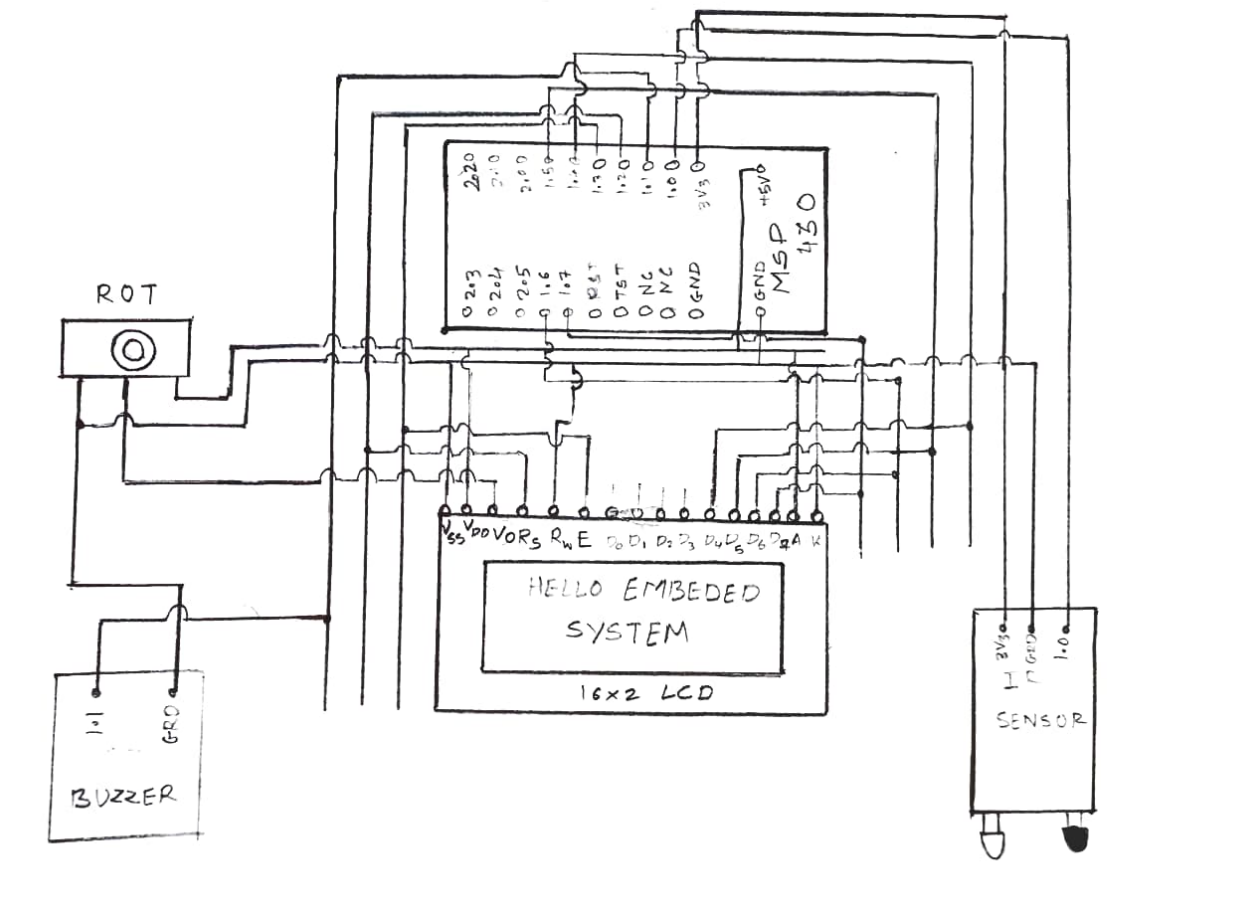 ROT
2.0
2.0
2.0
1.5
1.4
1.3
1.2
1.1
1.0
3V3
+5V
MSP
430
2.3
2.4
2.5
1.6
1.7
RST
TST
NC
NC
GND
GND
VSS VDD VO RS RW E D0 D1 D2 D3 D4 D5 D6 D7 A K
HELLO EMBEDED
SYSTEM
16x2 LCD
1.1
GRD
BUZZER
3V3
GRD
1.0
SENSOR